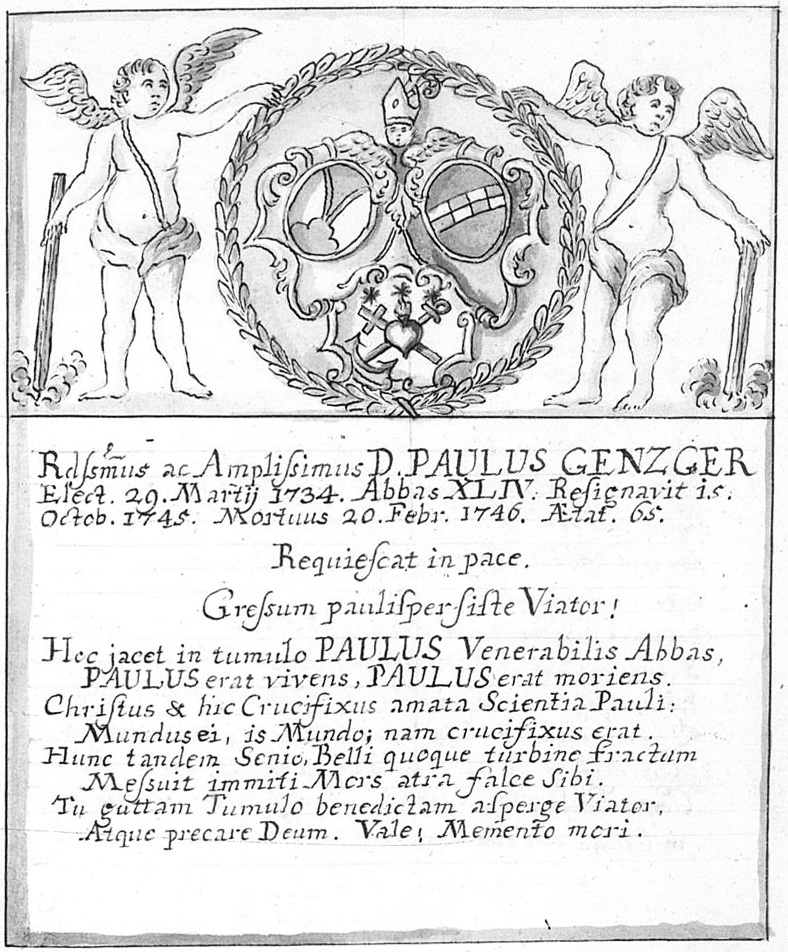 Rdſsm̃us ac Ampliſsimus D. PAULUS GENZGER
Elect. 29. Martij 1734. Abbas XLIV. Reſignavit 15.
Octob. 1745. Mortuus 20. Febr. 1746. Ætat. 65.
Requieſcat in pace.
Greſsum pauliſper ſiſte Viator!
Hoc jacet in tumulo PAULUS Venerabilis Abbas,
PAULUS erat vivens, PAULUS erat moriens.
Chriſtus & hic Crucifixus amata Scientia Pauli:
Mundus ei, is Mundo; nam crucifixus erat.
Hunc tandem Senio, Belli quoque turbine fractum
Meſsuit immiti Mors atra falce ſibi.
Tu guttam Tumulo benedictam aſperge Viator,
Atque precare Deum. Vale! Memento mori.